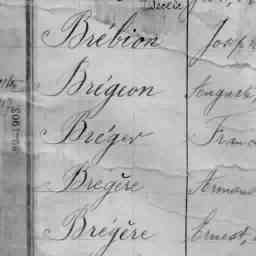 Brébion Josep
Brégeon Auguste
Bréger Fran
Bregère Armand
Brégère Ernest,